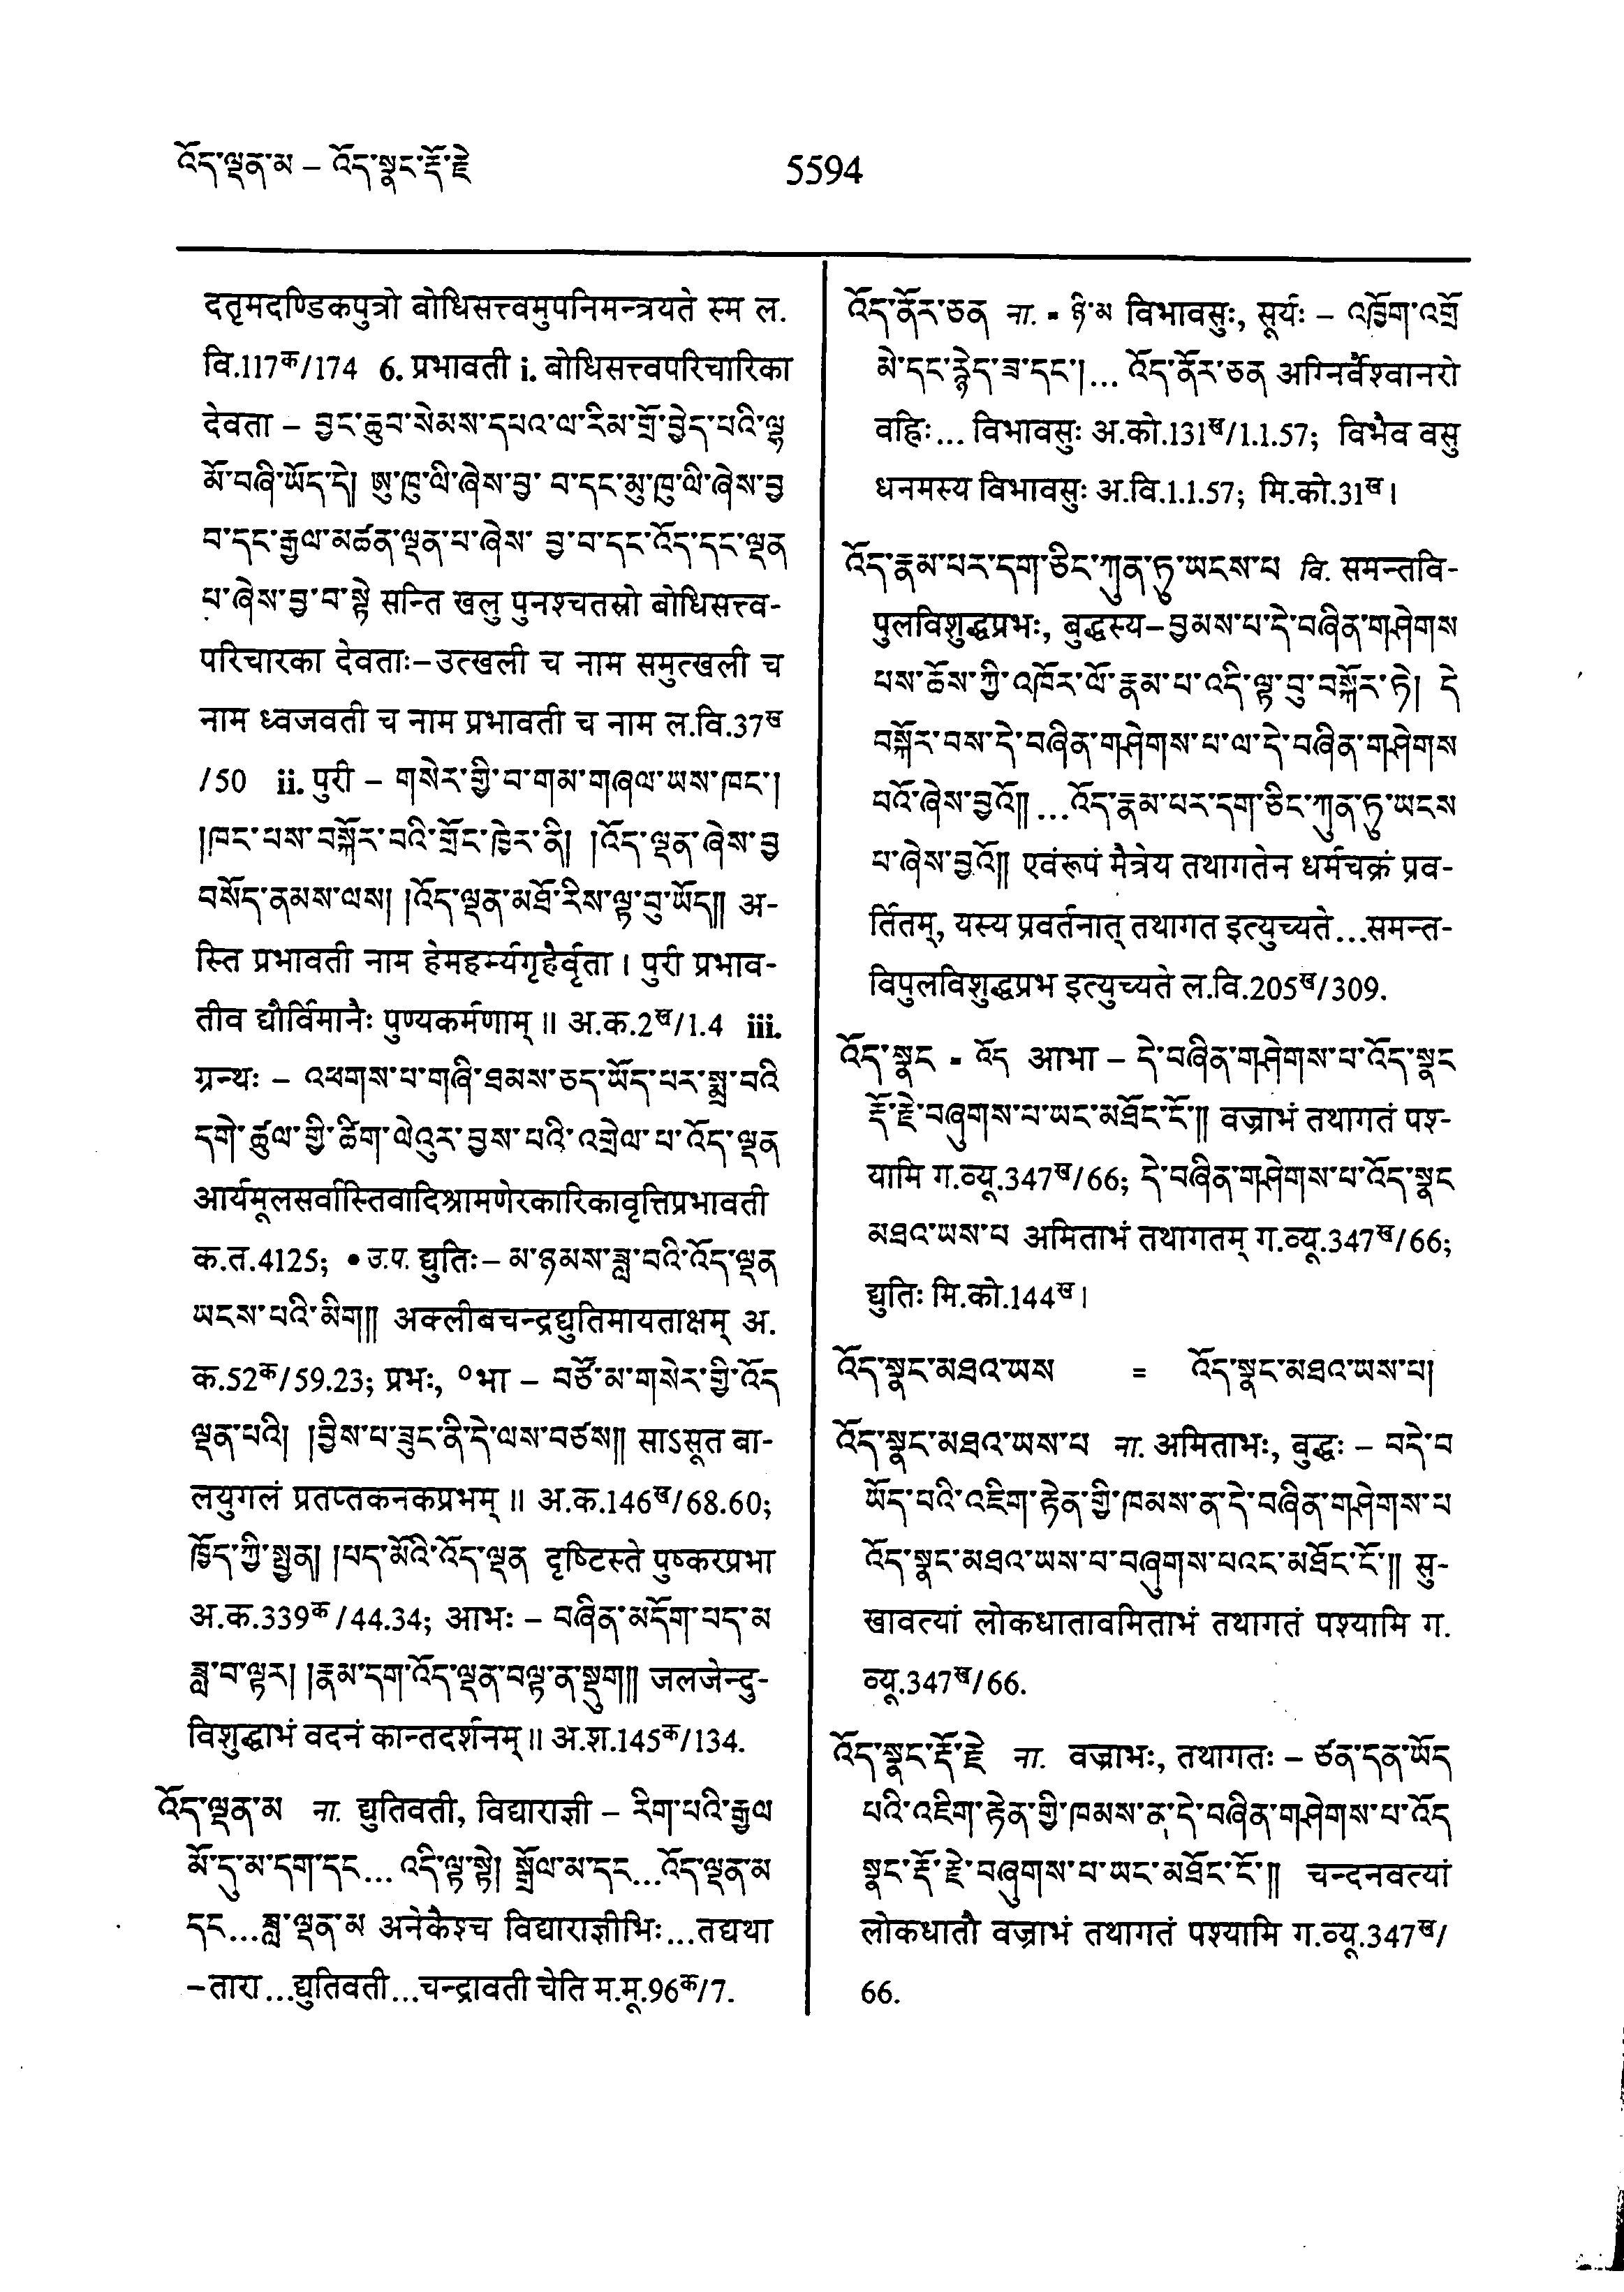 འོད་ལྡན་མ – འོད་སྣང་རྡོ་རྗེ
5594
दतृमदण्डिकपुत्रो बोधिसत्त्वमुपनिमन्त्रयते स्म ल.
वि.117क/174 6. प्रभावती i. बोधिसत्त्वपरिचारिका
देवता – བྱང་ཆུབ་སེམས་དཔའ་ལ་རིམ་གྲོ་བྱེད་པའི་ལྷ
མོ་བཞི་ཡོད་དེ། ཨུ་ཁུ་ལི་ཞེས་བྱ་ བ་དང་མུ་ཁུ་ལི་ཞེས་བྱ
བ་དང་རྒྱལ་མཚན་ལྡན་པ་ཞེས་ བྱ་བ་དང་འོད་དང་ལྡན
པ་ཞེས་བྱ་བ་སྟེ सन्ति खलु पुनश्चतस्रो बोधिसत्त्व-
परिचारका देवताः–उत्खली च नाम समुत्खली च
नाम ध्वजवती च नाम प्रभावती च नाम ल.वि.37ख
/50 ii. पुरी – གསེར་གྱི་བ་གམ་གཞལ་ཡས་ཁང་།
།ཁང་པས་བསྐོར་བའི་གྲོང་ཁྱེར་ནི། །འོད་ལྡན་ཞེས་བྱ
བསོད་ནམས་ལས། །འོད་ལྡན་མཐོ་རིས་ལྟ་བུ་ཡོད།། अ-
स्ति प्रभावती नाम हेमहर्म्यगृहैर्वृता । पुरी प्रभाव-
तीव द्यौर्विमानैः पुण्यकर्मणाम् ॥ अ.क.2ख/1.4 iii.
ग्रन्थः – འཕགས་པ་གཞི་ཐམས་ཅད་ཡོད་པར་སྨྲ་བའི
དགེ་ཚུལ་གྱི་ཚིག་ལེའུར་བྱས་པའི་འགྲེལ་པ་འོད་ལྡན
आर्यमूलसर्वास्तिवादिश्रामणेरकारिकावृत्तिप्रभावती
क.त.4125; • उ.प. द्युतिः – མ་ཉམས་ཟླ་བའི་འོད་ལྡན
ཡངས་པའི་མིག།། अक्लीबचन्द्रद्युतिमायताक्षम् अ.
क.52क/59.23; प्रभः, ॰भा – བཙོ་མ་གསེར་གྱི་འོད
ལྡན་པའི། །བྱིས་པ་ཟུང་ནི་དེ་ལས་བཙས།། साऽसूत बा-
लयुगलं प्रतप्तकनकप्रभम् ॥ अ.क.146ख/68.60;
ཁྱོད་ཀྱི་སྤྱན། །པད་མོའི་འོད་ལྡན दृष्टिस्ते पुष्करप्रभा
अ.क.339क/44.34; आभः – བཞིན་མདོག་པད་མ
ཟླ་བ་ལྟར། །རྣམ་དག་འོད་ལྡན་བལྟ་ན་སྡུག།། जलजेन्दु-
विशुद्धाभं वदनं कान्तदर्शनम् ॥ अ.श.145क/134.
འོད་ལྡན་མ ना. द्युतिवती, विद्याराज्ञी – རིག་པའི་རྒྱལ
མོ་དུ་མ་དག་དང... འདི་ལྟ་སྟེ། སྒྲོལ་མ་དང...འོད་ལྡན་མ
དང...ཟླ་ལྡན་མ अनेकैश्च विद्याराज्ञीभिः...तद्यथा
–तारा...द्युतिवती...चन्द्रावती चेति म.मू.96क/7.
འོད་ནོར་ཅན ना. = ཉི་མ विभावसुः, सूर्यः – འཁྱོག་འགྲོ
མེ་དང་རྙེད་ཟ་དང་།... འོད་ནོར་ཅན अग्निर्वैश्वानरो
वह्निः... विभावसुः अ.को.131ख/1.1.57; विभैव वसु
धनमस्य विभावसुः अ.वि.1.1.57; मि.को.31ख।
འོད་རྣམ་པར་དག་ཅིང་ཀུན་ཏུ་ཡངས་པ वि. समन्तवि-
पुलविशुद्धप्रभः, बुद्धस्य–བྱམས་པ་དེ་བཞིན་གཤེགས
པས་ཆོས་ཀྱི་འཁོར་ལོ་རྣམ་པ་འདི་ལྟ་བུ་བསྐོར་ཏེ། དེ
བསྐོར་བས་དེ་བཞིན་གཤེགས་པ་ལ་དེ་བཞིན་གཤེགས
པའོ་ཞེས་བྱའོ།། ...འོད་རྣམ་པར་དག་ཅིང་ཀུན་ཏུ་ཡངས
པ་ཞེས་བྱའོ།། एवंरूपं मैत्रेय तथागतेन धर्मचक्रं प्रव-
र्तितम्, यस्य प्रवर्तनात् तथागत इत्युच्यते...समन्त-
विपुलविशुद्धप्रभ इत्युच्यते ल.वि.205ख/309.
འོད་སྣང = འོད आभा – དེ་བཞིན་གཤེགས་པ་འོད་སྣང
རྡོ་རྗེ་བཞུགས་པ་ཡང་མཐོང་ངོ་།། वज्राभं तथागतं पश्-
यामि ग.व्यू.347ख/66; དེ་བཞིན་གཤེགས་པ་འོད་སྣང
མཐའ་ཡས་པ अमिताभं तथागतम् ग.व्यू.347ख/66;
द्युतिः मि.को.144ख।
འོད་སྣང་མཐའ་ཡས = འོད་སྣང་མཐའ་ཡས་པ།
འོད་སྣང་མཐའ་ཡས་པ ना. अमिताभः, बुद्धः – བདེ་བ
ཡོད་པའི་འཇིག་རྟེན་གྱི་ཁམས་ན་དེ་བཞིན་གཤེགས་པ
འོད་སྣང་མཐའ་ཡས་པ་བཞུགས་པའང་མཐོང་ངོ་།། सु-
खावत्यां लोकधातावमिताभं तथागतं पश्यामि ग.
व्यू.347ख/66.
འོད་སྣང་རྡོ་རྗེ ना. वज्राभः, तथागतः – ཙན་དན་ཡོད
པའི་འཇིག་རྟེན་གྱི་ཁམས་ན་དེ་བཞིན་གཤེགས་པ་འོད
སྣང་རྡོ་རྗེ་བཞུགས་པ་ཡང་མཐོང་ངོ་།། चन्दनवत्यां
लोकधातौ वज्राभं तथागतं पश्यामि ग.व्यू.347ख/
66.